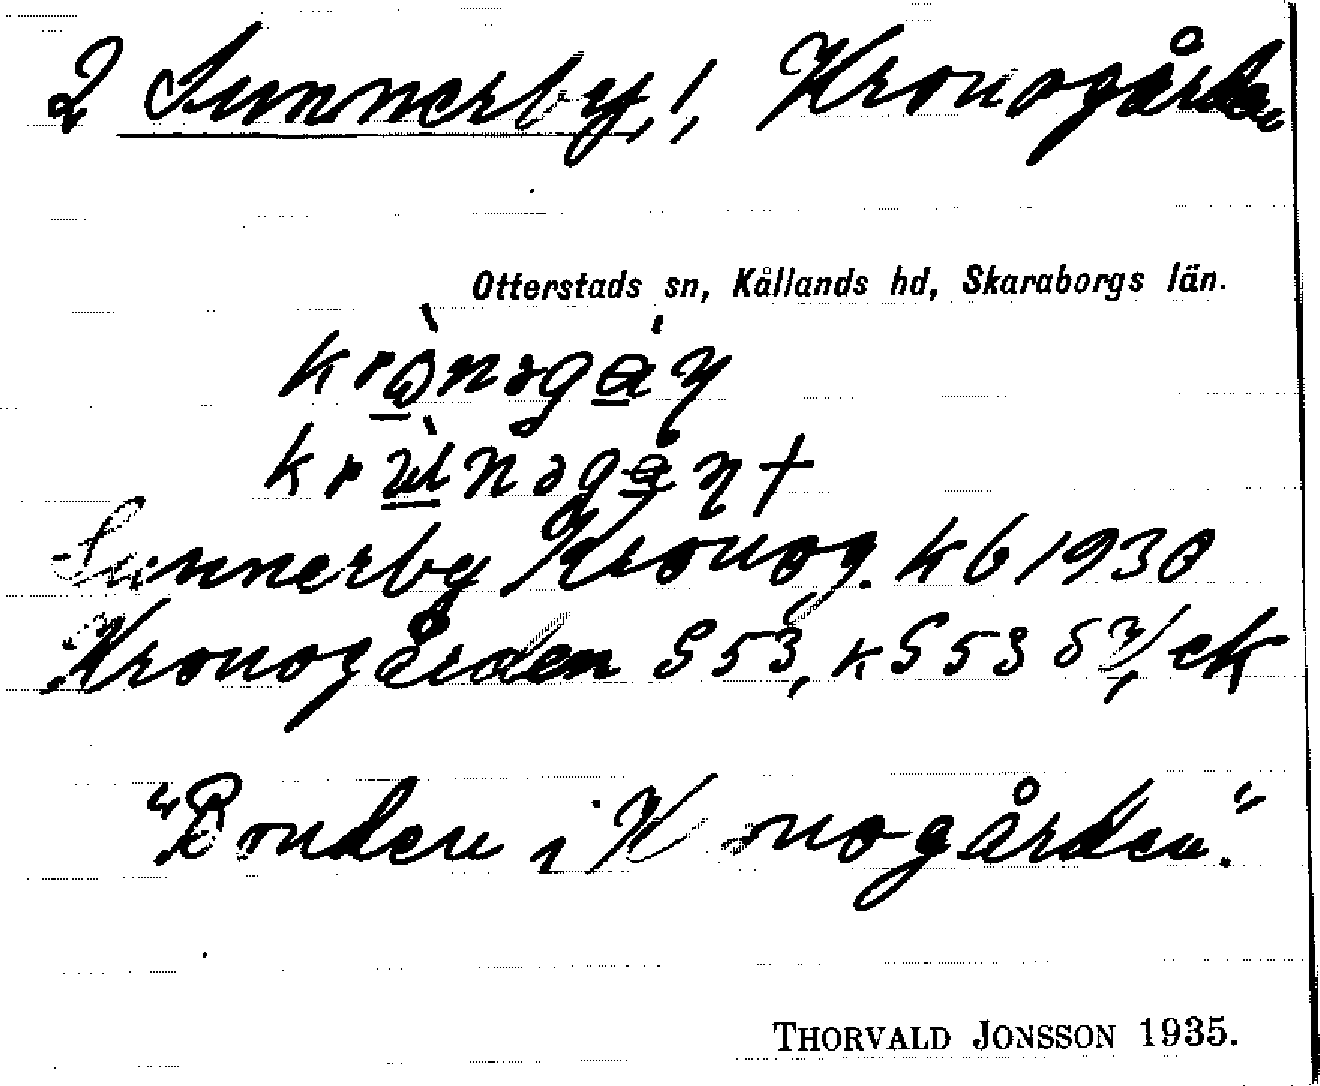 2 Sunnerby, !, Kronogården
Otterstads sn, Kållands hd, Skaraborgs län.
Sunnerby Kronog. kb 1930
Kronogården S53, kS53 ek
"Bonden i Kronogården."
THORVALD JONSSON 1935.